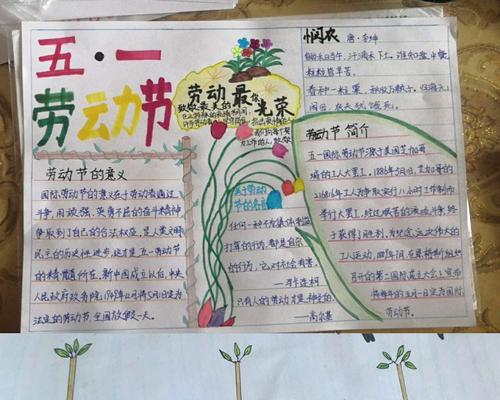 五·一
劳动节
劳动最光荣
致敬最美的
悯农
唐·李绅
锄禾日当午,汗滴禾下土,谁知盘中餐
粒粒皆辛苦。
春种一粒粟,秋收万颗子,四海无
闲田,农夫犹饿死。
劳动节的意义
国际劳动节的意义在于劳动者通过
斗争,用顽强、英勇不屈的奋斗精神
争取到了自己的合法权益,是人类文明
民主的历史性进步,这才是五一劳动节
的精髓所在。新中国成立以后,中央
人民政府政务院,1949年12月将5月1日定为
法定的劳动节,全国放假一天。
关于劳动
节的名言
任何一种不为集体利益
打算的行为,都是自杀
的行为,它对社会有害。
——马卡连柯
只有人的劳动才是神圣的
——高尔基
劳动节 简介
五一国际劳动节源于美国芝加哥
城的工人大罢工,1886年5月1日,芝加哥的
21.6万名工人为争取实行八小时工作制而
举行大罢工,经过艰苦的流血斗争,终
于获得了胜利,为纪念这次伟大的
工人运动,1889年7月,在恩格斯组织
召开的第二国际成立大会上宣布
将每年的五月一日定为国际
劳动节。